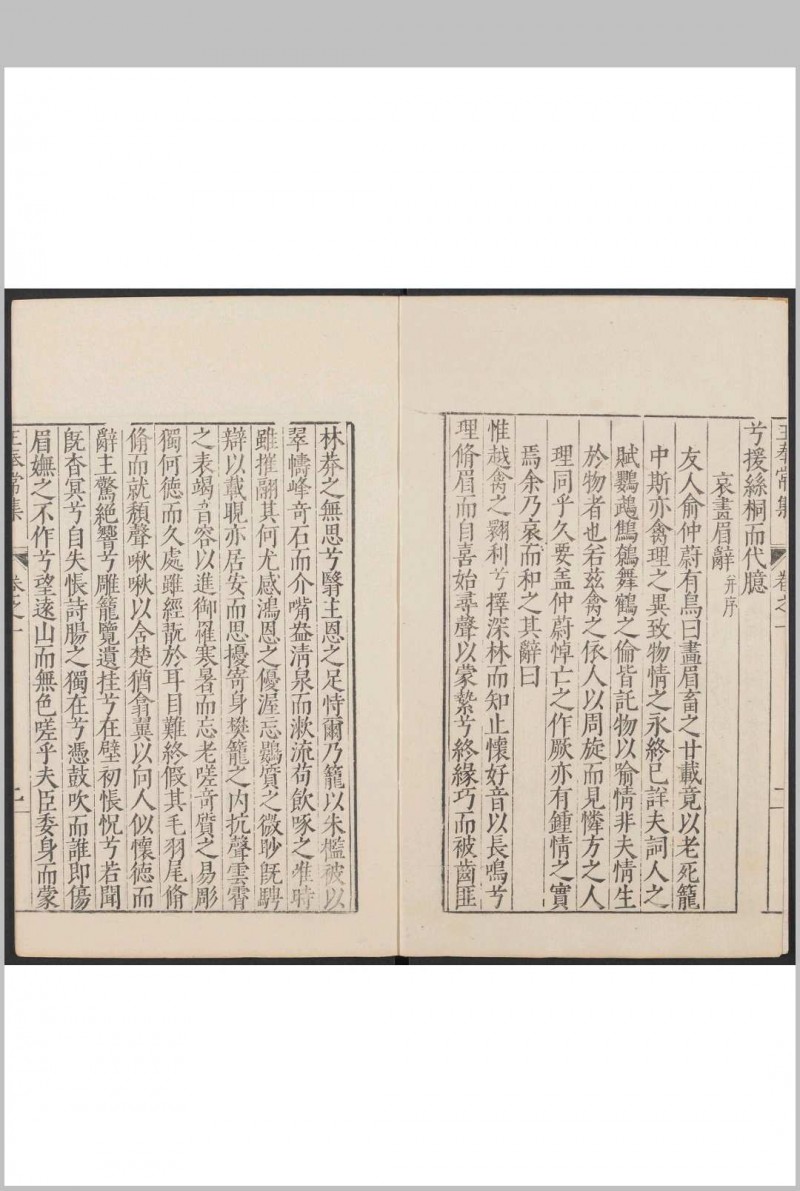 王奉常集 卷之一 二
兮援絲桐而代臆
哀畫眉辭并序
友人俞仲蔚有鳥曰畫眉畜之廿載竟以老死籠
中斯亦禽理之異致物情之永終已詳夫詞人之
賦鸚鵡鷦鷯舞鶴之倫皆託物以喻情非夫情生
於物者也若茲禽之依人以周旋而見憐方之人
理同乎久要盖仲蔚悼亡之作厥亦有鍾情之實
焉余乃哀而和之其辭曰
惟越禽之翾利兮擇深林而知止懷好音以長鳴兮
理脩眉而自喜始尋聲以蒙縶兮終緣巧而被齒匪
林莽之無思兮翳主恩之足恃爾乃籠以朱檻被以
翠幬峰奇石而介嘴盎清泉而漱流苟飲啄之惟時
雖摧翮其何尤感鴻恩之優渥忘鷃質之微眇旣騁
辯以載睍亦居安而思擾寄身樊籠之内抗聲雲霄
之表竭音容以進御罹寒暑而忘老嗟奇質之易彫
獨何德而久處雖經翫於耳目難終假其毛羽尾脩
脩而就頹聲啾啾以含楚猶翕翼以向人似懷德而
辭主驚絶響兮雕籠覽遺挂兮在壁初悵怳兮若聞
旣杳冥兮自失悵詩腸之獨在兮憑鼓吹而誰即傷
眉嫵之不作兮望遠山而無色嗟乎夫臣委身而蒙
王奉常集 卷之一